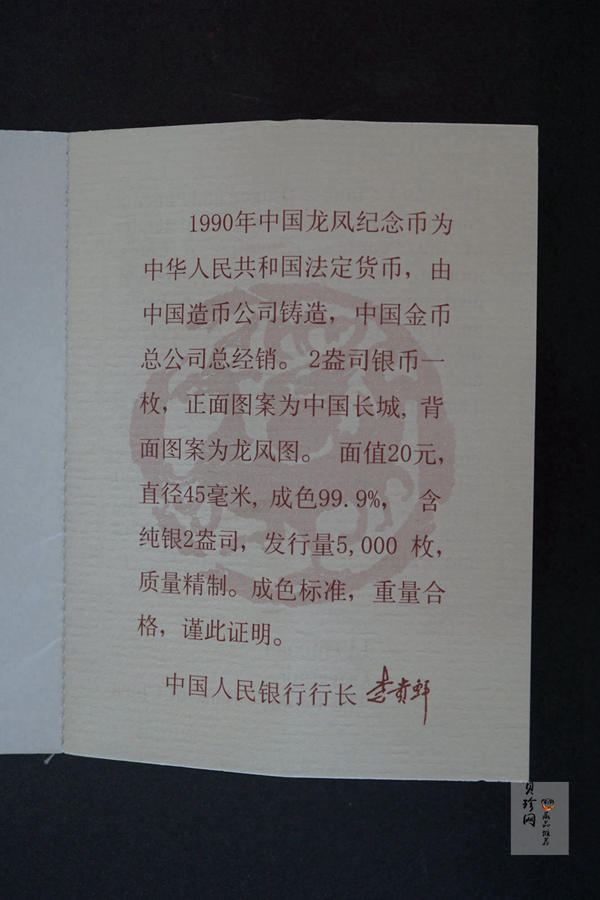 1990年中国龙凤纪念币为
中华人民共和国法定货币，由
中国造币公司铸造，中国金币
总公司总经销。2盎司银币一
枚，正面图案为中国长城，背
面图案为龙凤图。 面值20元，
直径45毫米，成色99.9%， 含
纯银2盎司，发行量5,000 枚，
质量精制。成色标准，重量合
格，谨此证明。
中国人民银行行长 李贵鲜
珍网
藏品推荐